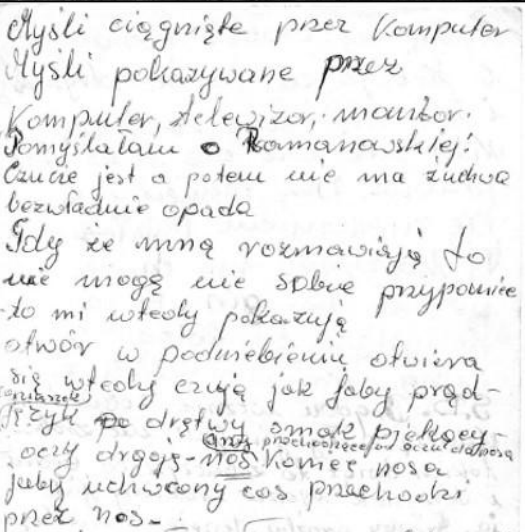 Myśli ciągnięte przez Komputer
Myśli pokazywane przez
Komputer, telewizor, monitor.
Pomyślałam o Romanowskiej:
Czucie jest a potem nie ma żuchwa
bezwładnie opada
Gdy ze mną rozmawiają to
nie mogę nic sobie przypomnieć
to mi wtedy pokazują
otwór w podniebieniu otwiera
się wtedy czuję jak jaby prąd-
Język drętwy smak piekący-
oczy drgają- nos Koniec nosa
jakby uchwcony coś przechodzi
przez nos-